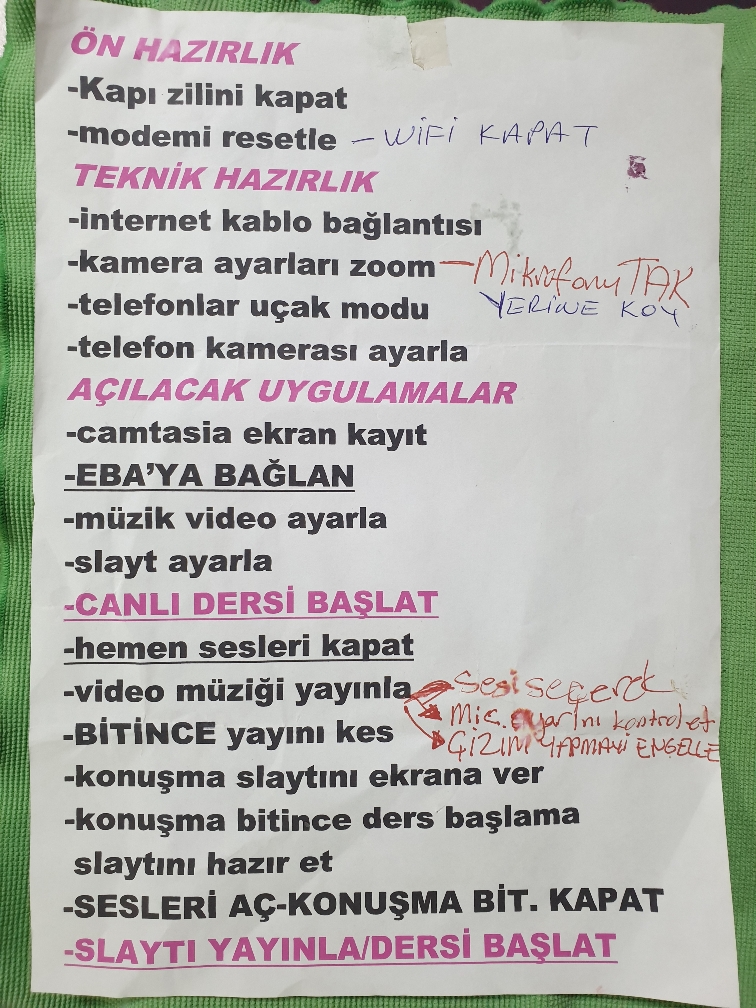 ÖN HAZIRLIK
-Kapı zilini kapat
-modemi resetle - WİFİ KAPAT
TEKNİK HAZIRLIK
-internet kablo bağlantısı
-kamera ayarları zoom - Mikrofonu TAK
YERİNE KOY
-telefonlar uçak modu
-telefon kamerası ayarla
AÇILACAK UYGULAMALAR
-camtasia ekran kayıt
-EBA'YA BAĞLAN
-müzik video ayarla
-slayt ayarla
-CANLI DERSİ BAŞLAT
-hemen sesleri kapat
-video müziği yayınla Sesi seçerek
Mic. ayarını kontrol et
-BİTİNCE yayını kes ÇİZİM YAPMAYI ENGELLE
-konuşma slaytını ekrana ver
-konuşma bitince ders başlama
slaytını hazır et
-SESLERİ AÇ-KONUŞMA BİT. KAPAT
-SLAYTI YAYINLA/DERSİ BAŞLAT